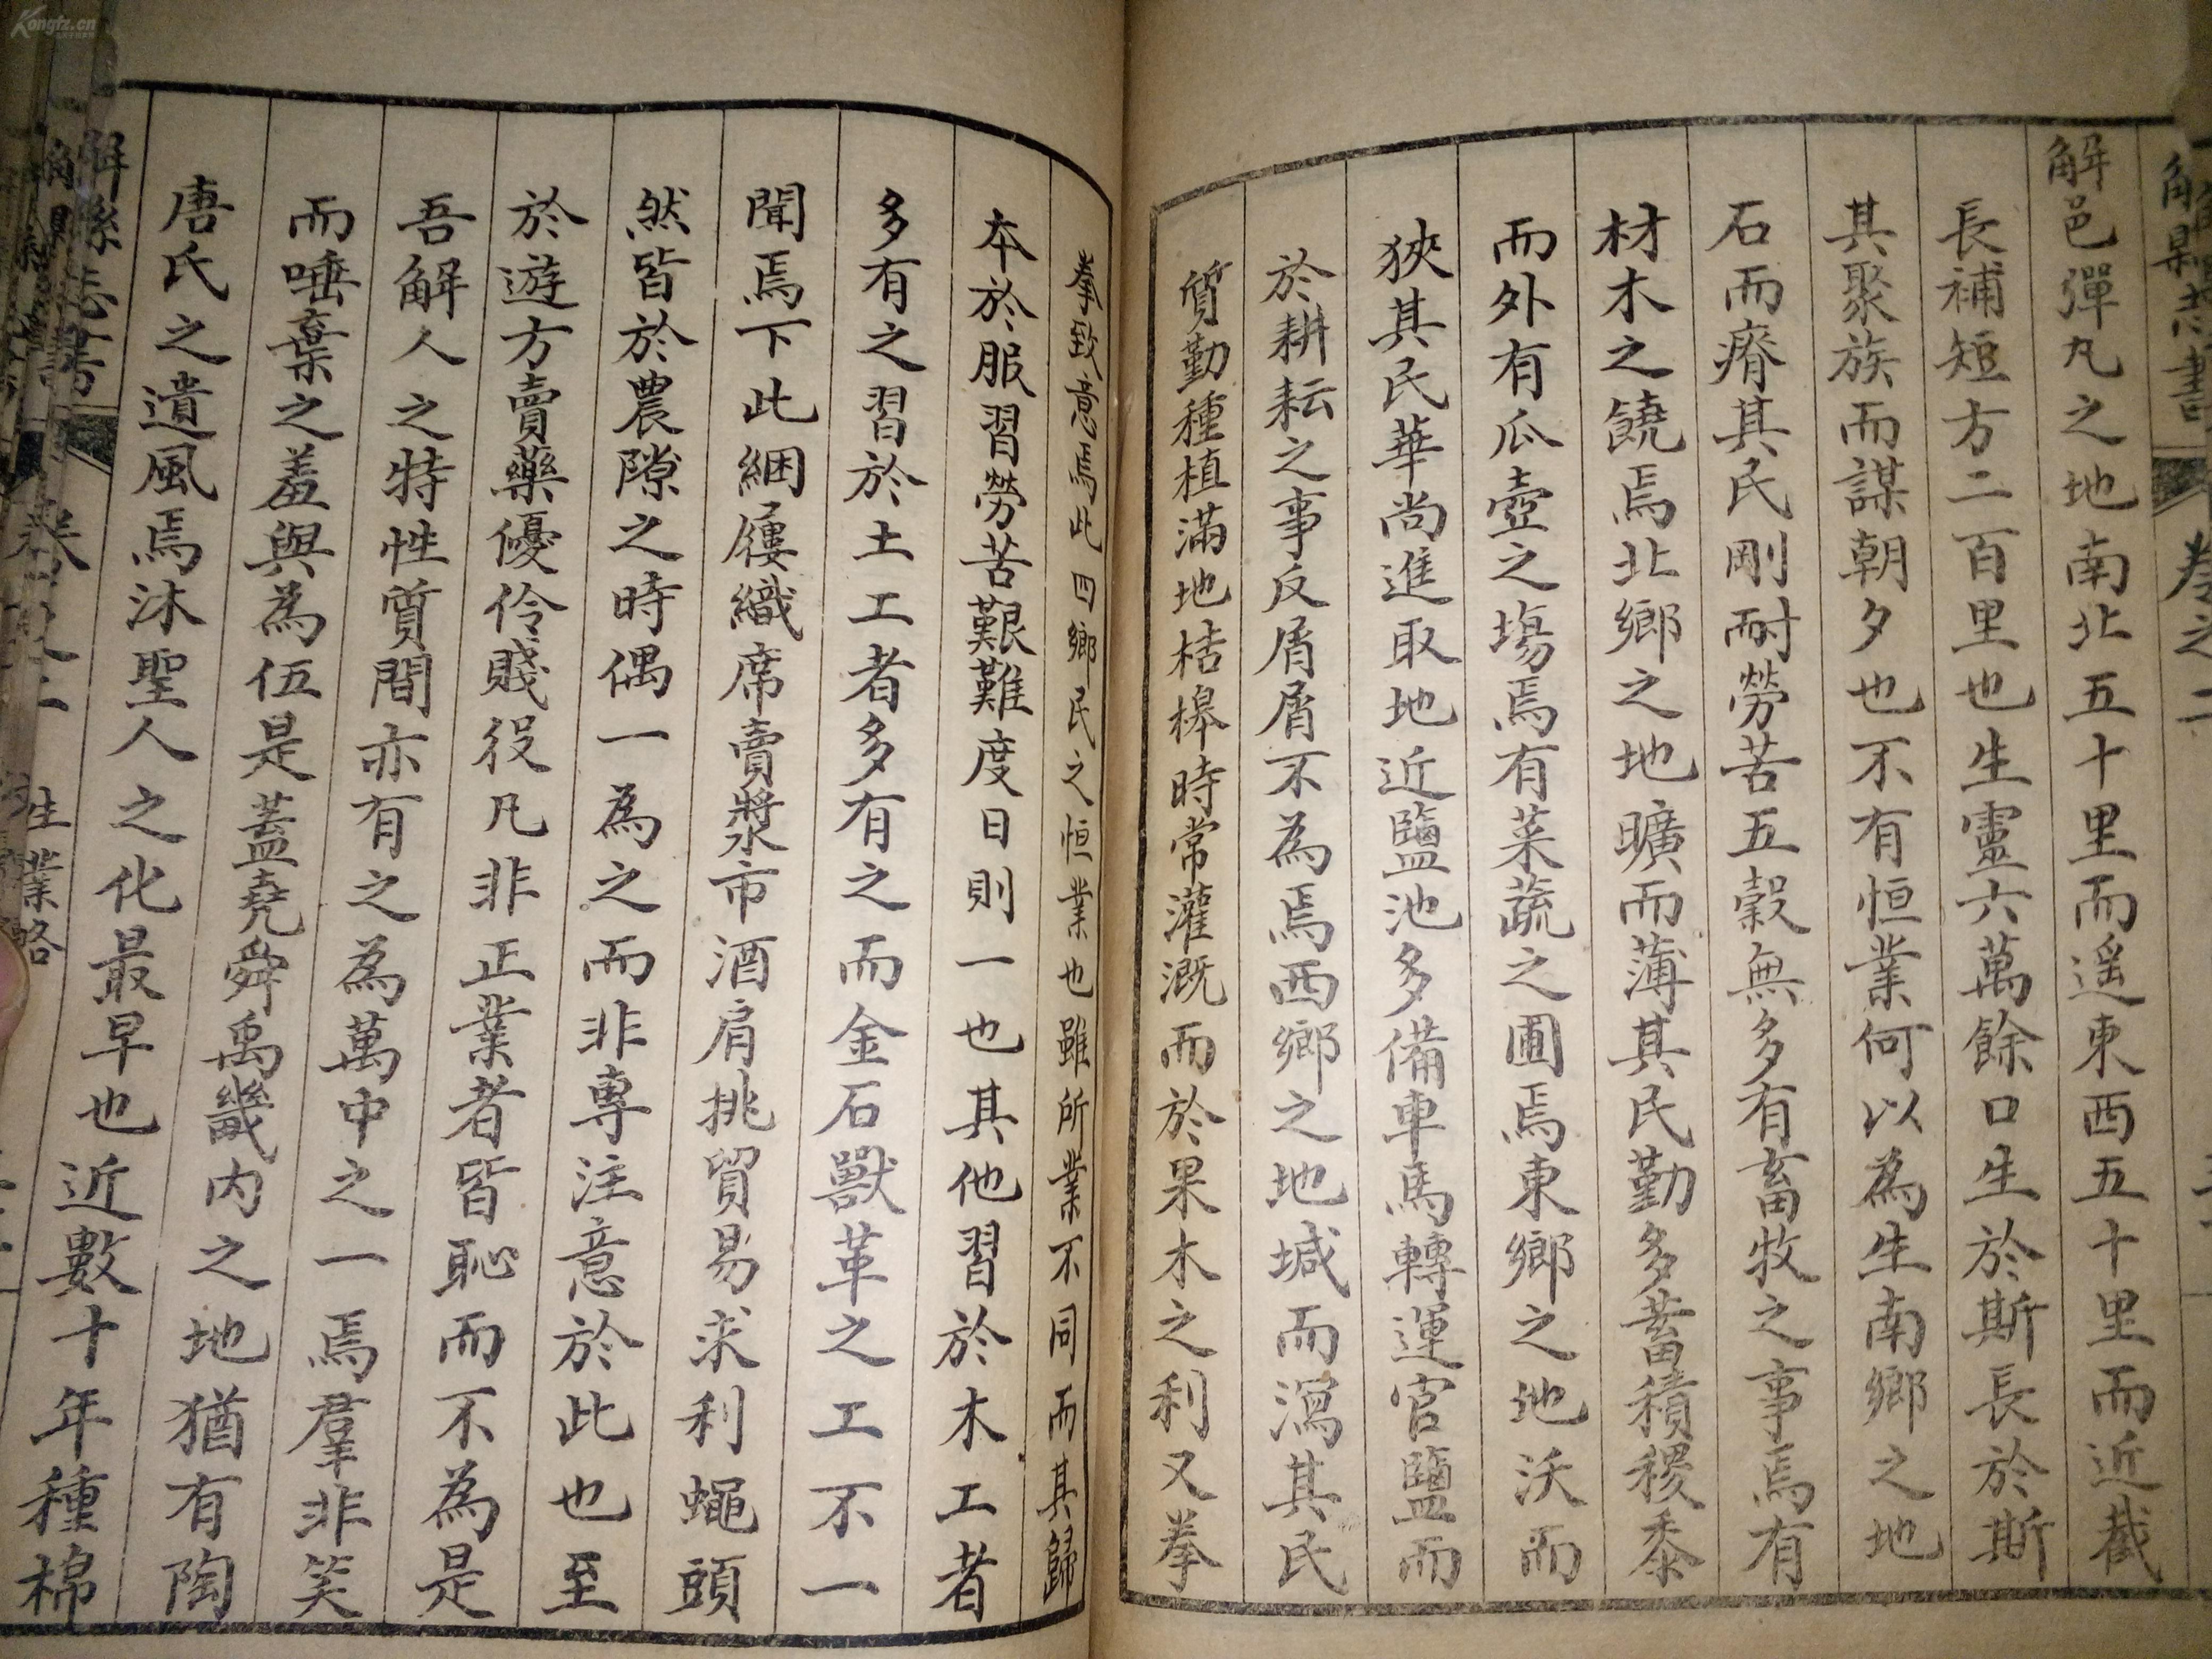 解縣志書
卷之二
解邑彈丸之地南北五十里而遥東西五十里而近截
長補短方二百里也生靈六萬餘口生於斯長於斯
其聚族而謀朝夕也不有恒業何以為生南鄉之地
石而瘠其民剛耐勞苦五穀無多有畜牧之事焉有
材木之饒焉北鄉之地曠而薄其民勤多蓄積稷黍
而外有瓜壺之塲焉有菜蔬之圃焉東鄉之地沃而
狹其民華尚進取地近鹽池多備車馬轉運官鹽而
於耕耘之事反屑屑不為焉西鄉之地堿而瀉其民
質勤種植滿地桔槹時常灌溉而於果木之利又拳
拳致意焉此四鄉民之恒業也雖所業不同而其歸
本於服習勞苦艱難度日則一也其他習於木工者
多有之習於土工者多有之而金石獸革之工不一
聞焉下此綑屨織席賣漿市酒肩挑貿易求利蠅頭
然皆於農隙之時偶一為之而非專注意於此也至
於遊方賣藥優伶賤役凡非正業者皆恥而不為是
吾解人之特性質間亦有之為萬中之一焉羣非笑
而唾棄之羞與為伍是蓋堯舜禹畿内之地猶有陶
唐氏之遺風焉沐聖人之化最早也近數十年種棉
解縣志書
卷之二
生業略
Kongfz.cn